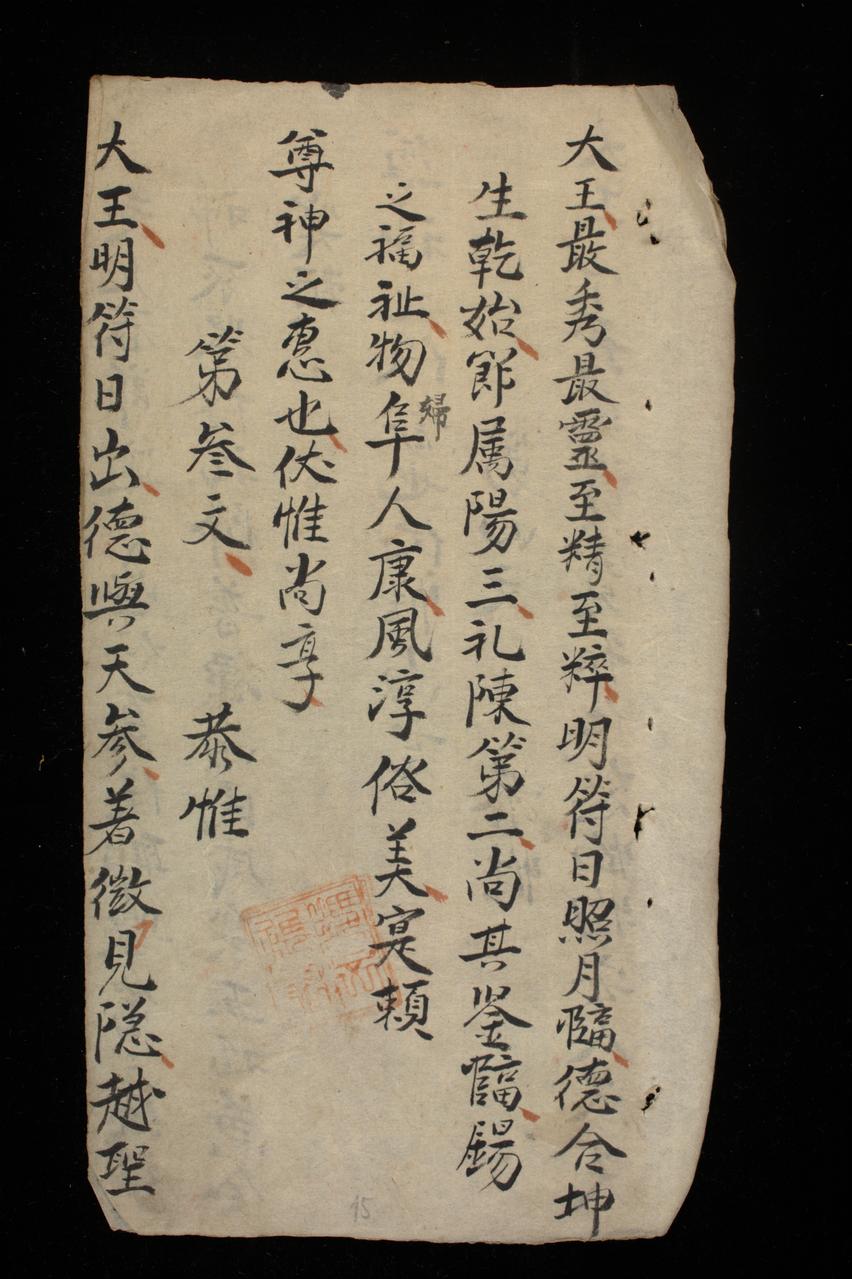 大王最秀最靈至精至粹明符日照月臨德合坤
生乾始節属陽三礼陳第二尚其鉴臨錫
之福祉物阜人康風淳俗美寔頼
歸
尊神之惠也伏惟尚享
第叁文 恭惟
大王明符日出德與天參著微見隠越聖
15